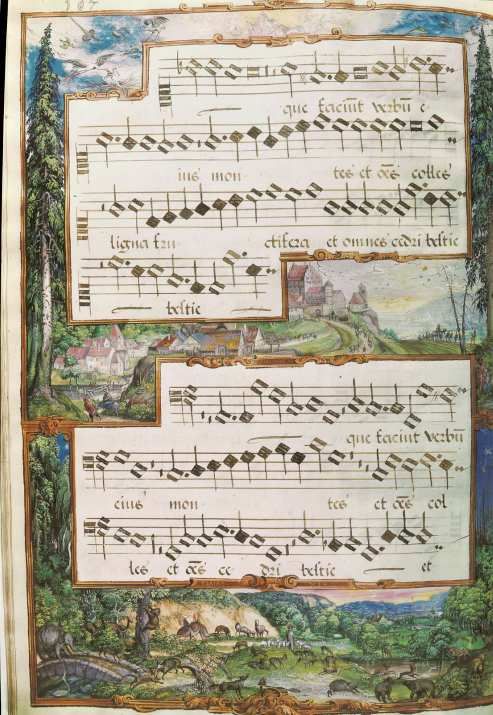 que faciūt verbū e
ius mon tes et oēs colles
ligna fru ctifera et omnes cedri bestie
bestie
que faciūt verbū
eius mon tes et oēs col
les et oēs ce dri bestie et